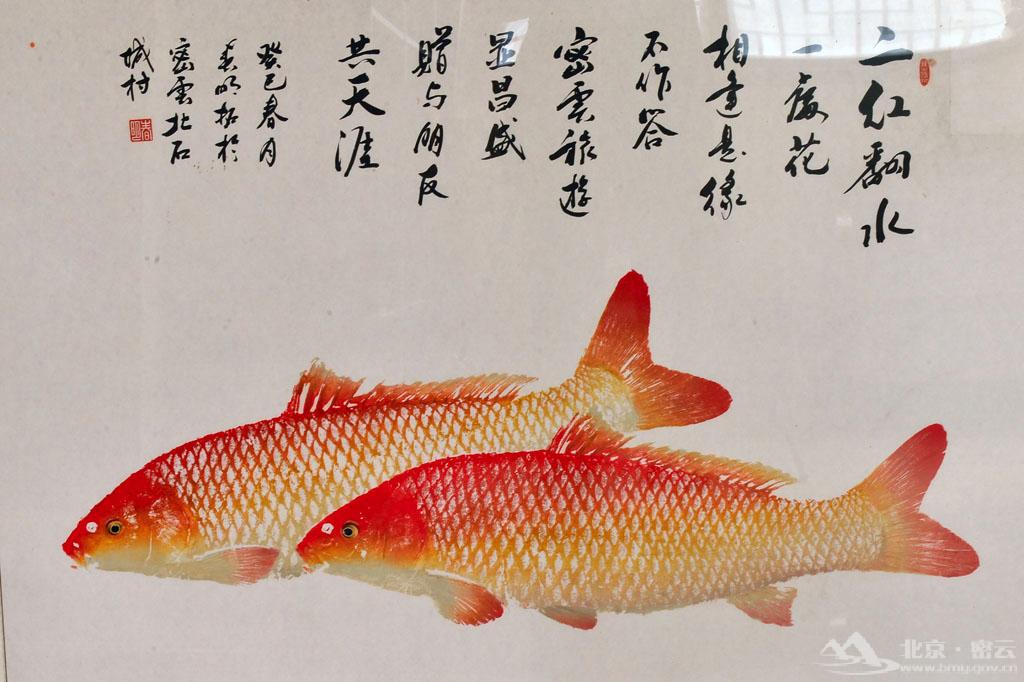 二红翻水
一处花
相逢是缘
不作答
密雲旅遊
显昌盛
赠与朋友
共天涯
癸巳春月
春明拓於
密雲北石
城村
春明
北京·密云
www.bmy.gov.cn